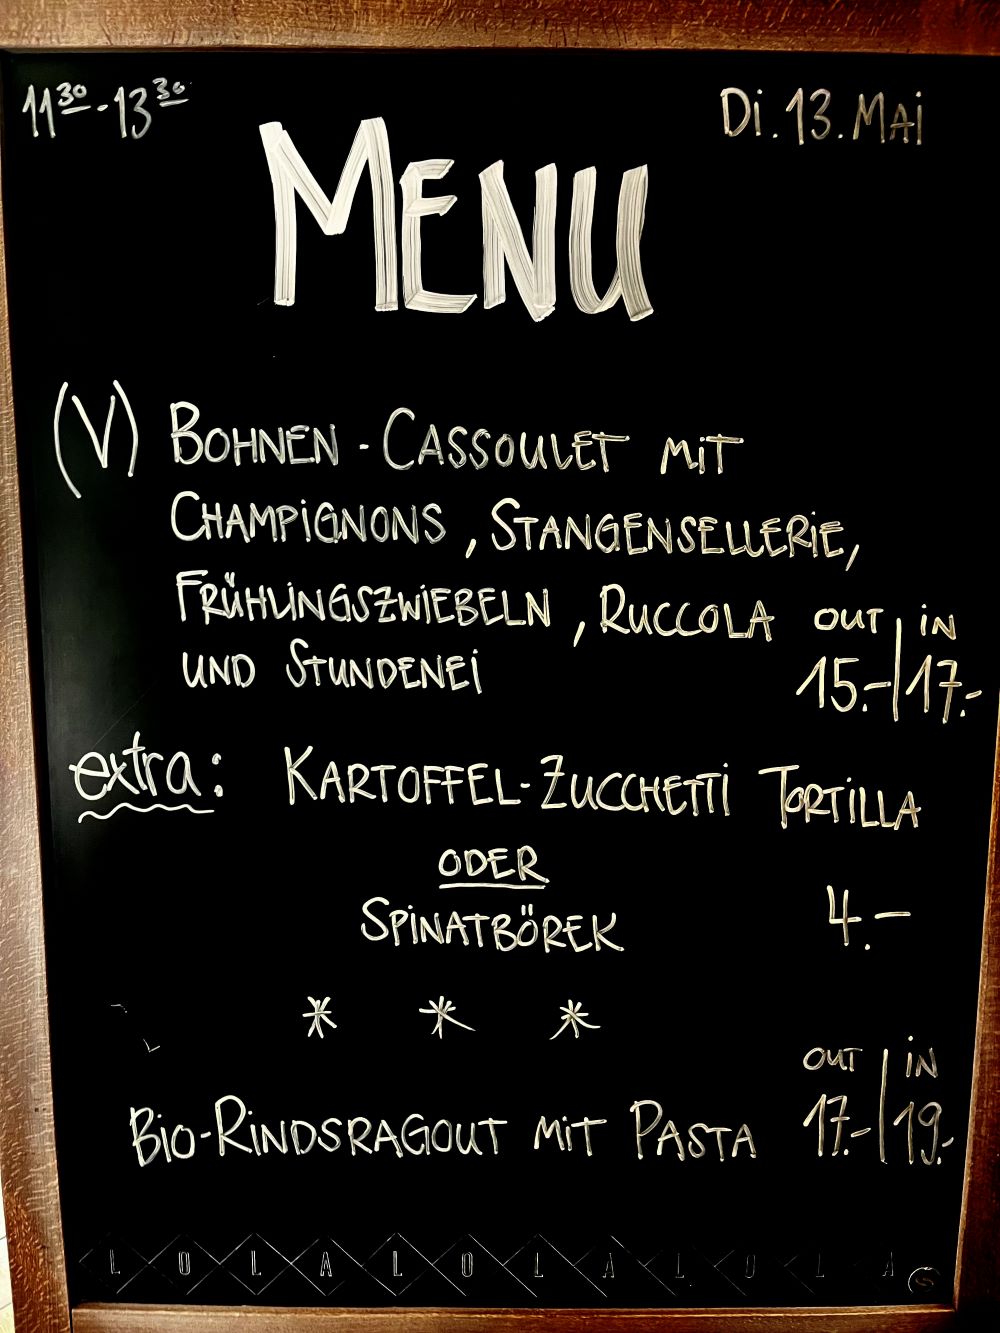 11³⁰-13³⁰
Di. 13. MAi
MENU
(V) BOHNEN-CASSOULET MiT
CHAMPiGNONS, STANGENSELLERiE,
FRÜHLiNGSZWiEBELN, RUCCOLA
UND STUNDENEi
OUT | iN
15.- | 17.-
extra: KARTOFFEL-ZUCCHETTi TORTiLLA
ODER
SPiNATBÖREK
4.-
* * *
OUT | iN
BiO-RiNDSRAGOUT MiT PASTA 17.- | 19.-
LOLALOLALOLA